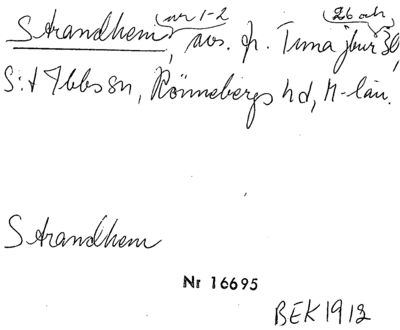 Strandhem (nr 1-2), avs. fr. Tuna jbur (26 och 30),
S:t Ibbs sn, Rönnebergs hd, M-län.
Strandhem
Nr 16695
BEK 1912